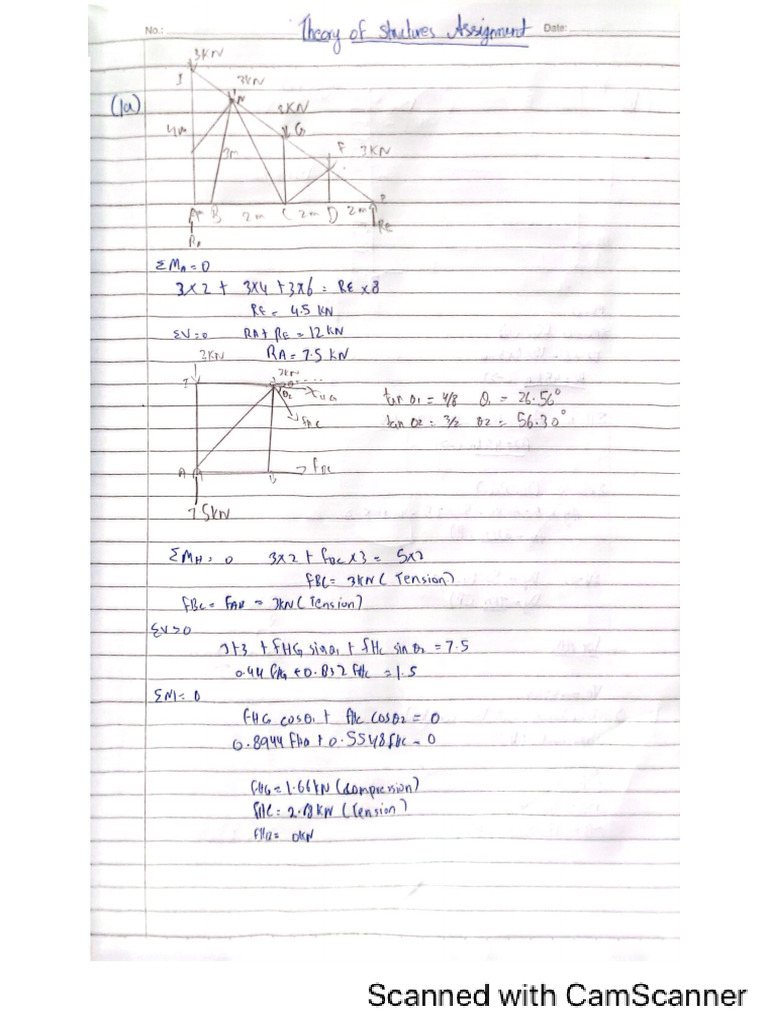 No.: Theory of structures Assignment Date:
3KN
I
3KN
(1a)
H
3KN
G
4m
F 3KN
3m
A B 2m C 2m D 2m
RA
RE
ΣMA=0
3x2 + 3x4 +3x6 = RE x8
RE = 4.5 KN
ΣV=0 RA+ RE = 12KN
RA = 7.5 KN
3KN
I
θ2
tan θ1 = 4/8 θ1 = 26.56°
fHC
tan θ2 = 3/2 θ2 = 56.30°
A
B
fBC
7.5KN
ΣMH = 0 3x2 + fBC x3 = 5x2
fBC = 3KN (Tension)
fBC = FAB = 3KN (Tension)
ΣV=0
3+3 + fHG sinθ1 + fHC sin θ2 = 7.5
0.44 fHG + 0.832 fHC = 1.5
ΣM= 0
fHG cosθ1 + fHC cosθ2 = 0
0.8944 fHG + 0.5548fHC = 0
fHG = 1.66KN (compression)
fHC = 2.68KN (tension)
fHB = 0KN
Scanned with CamScanner